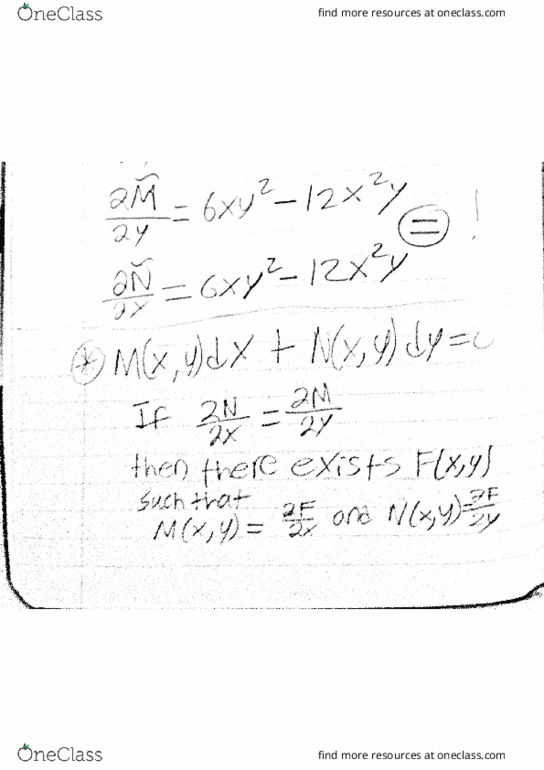 OneClass
find more resources at oneclass.com
∂M̃/∂y = 6xy² - 12x²y
= !
∂Ñ/∂x = 6xy² - 12x²y
* M(x,y)dx + N(x,y)dy = 0
If ∂N/∂x = ∂M/∂y
then there exists F(x,y)
such that
M(x,y) = ∂F/∂x and N(x,y) = ∂F/∂y
OneClass
find more resources at oneclass.com